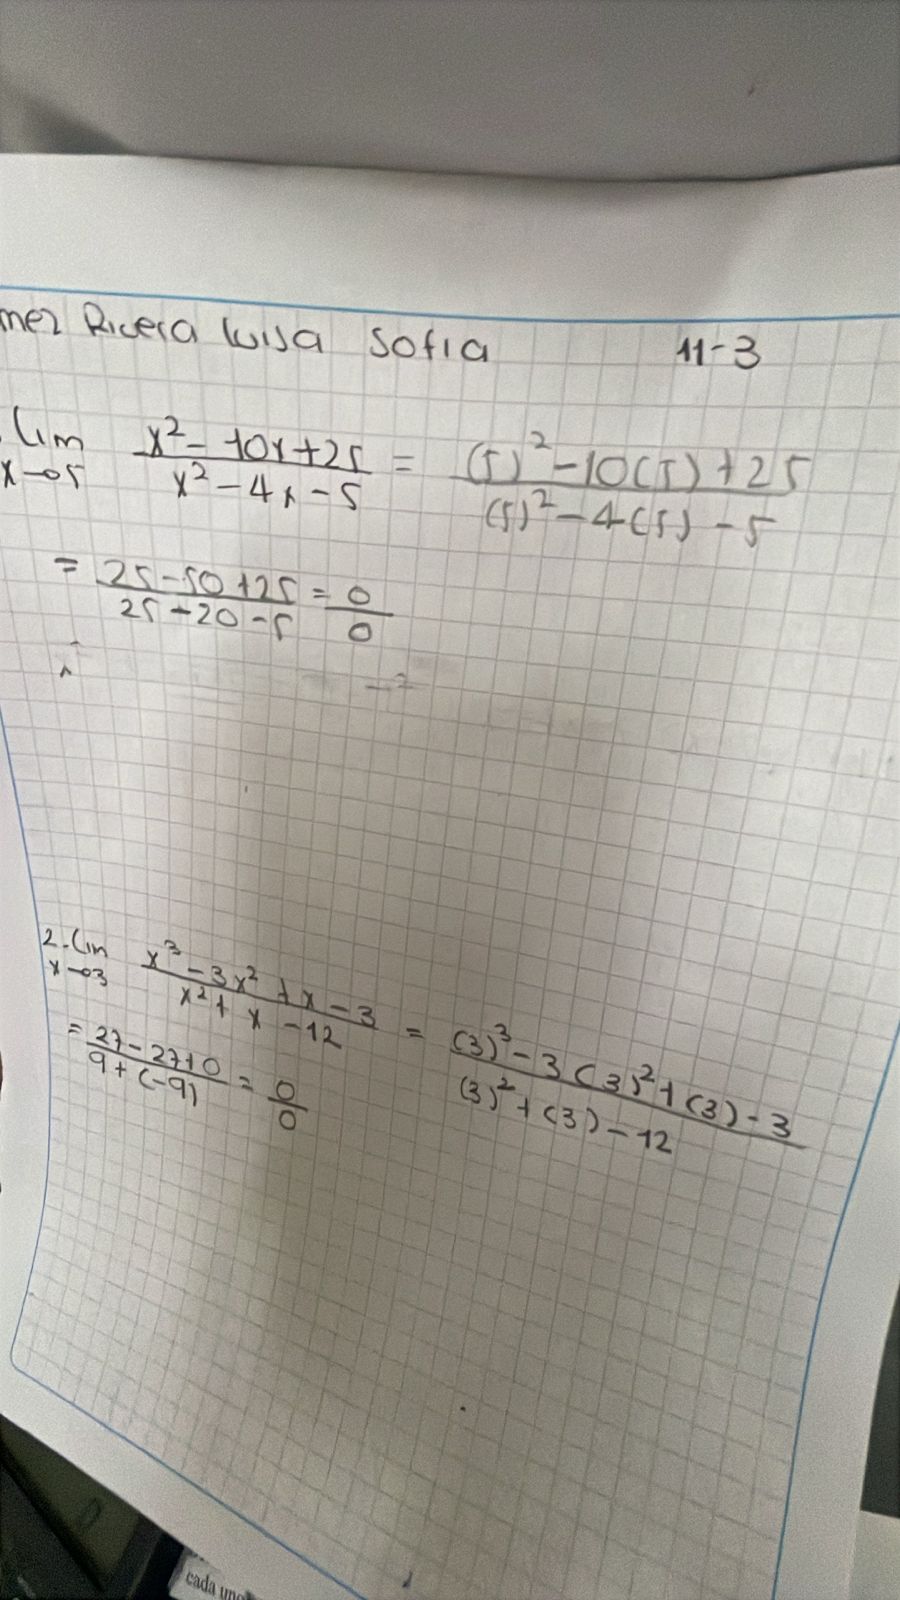 mez Rivera Luisa Sofia 11-3
. Lim x→5 x² - 10x + 25 / x² - 4x - 5 = (5)² - 10(5) + 25 / (5)² - 4(5) - 5
= 25 - 50 + 25 / 25 - 20 - 5 = 0 / 0
2. Lim x→3 x³ - 3x² + x - 3 / x² + x - 12 = (3)³ - 3(3)² + (3) - 3 / (3)² + (3) - 12
= 27 - 27 + 0 / 9 + (-9) = 0 / 0
cada uno